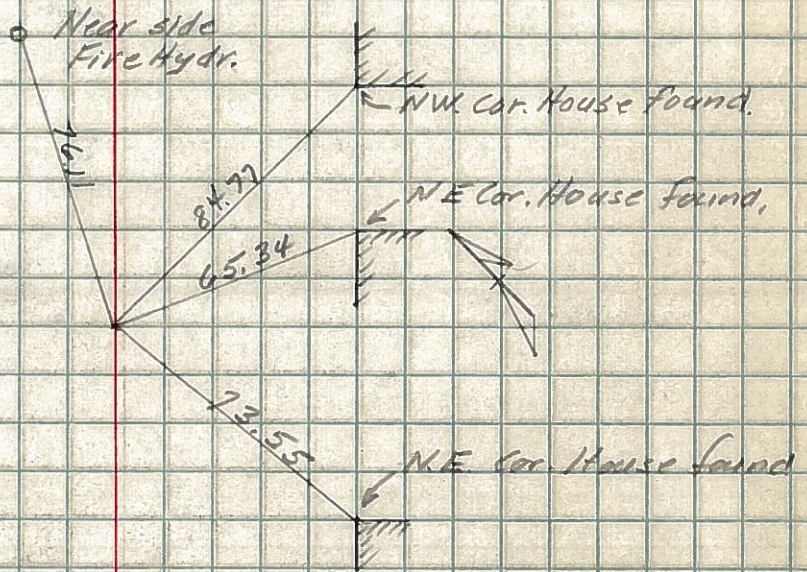 Near side
Fire Hydr.
76.11
NW. Cor. House found.
84.77
N E Cor. House found,
65.34
73.55
N.E. Cor. House found